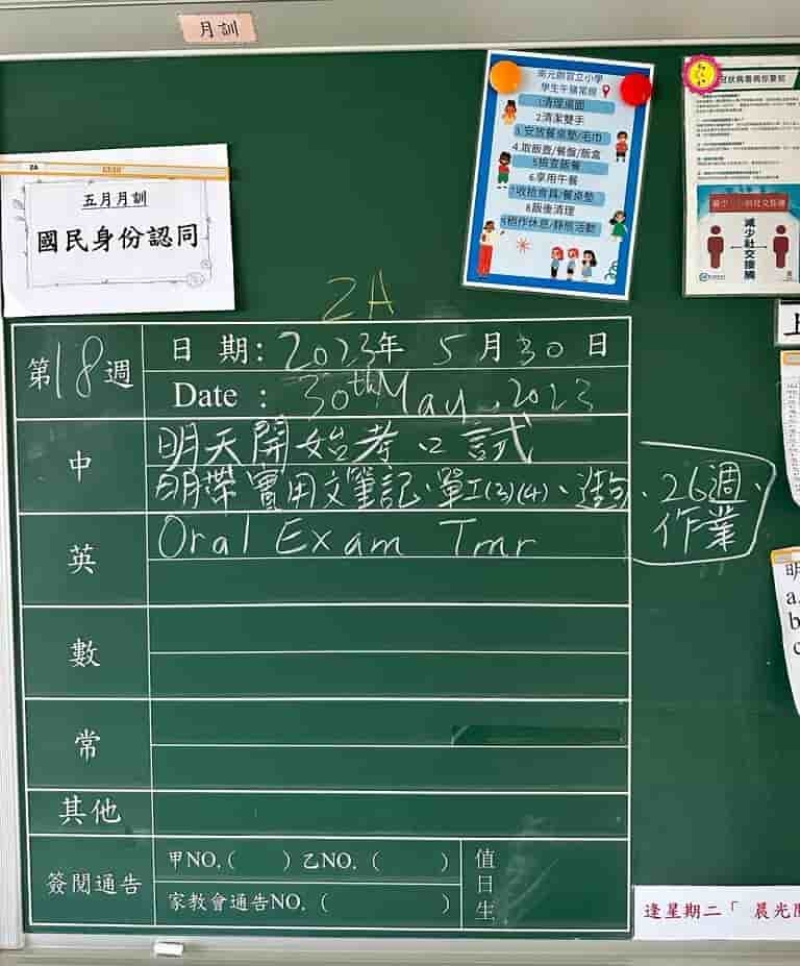 月訓
五月月訓
國民身份認同
學生午膳常規
1.清理桌面
2.清潔雙手
3.安放餐桌墊/毛巾
4.取飯壺/餐盤/飯盒
5.檢查飯餐
6.享用午餐
7.收拾食具/餐桌墊
8.飯後清理
減少社交接觸
2A
第18週
日 期: 2023年 5月30日
Date : 30th May, 2023
中
明天開始考口試
明帶實用文筆記、單工(3)(4)、造句、26週、
作業
英
Oral Exam Tmr
數
常
其他
簽閱通告
甲NO.( ) 乙NO. ( )
家教會通告NO. ( )
值日生
上
明
a.
b
c
逢星期二「 晨光